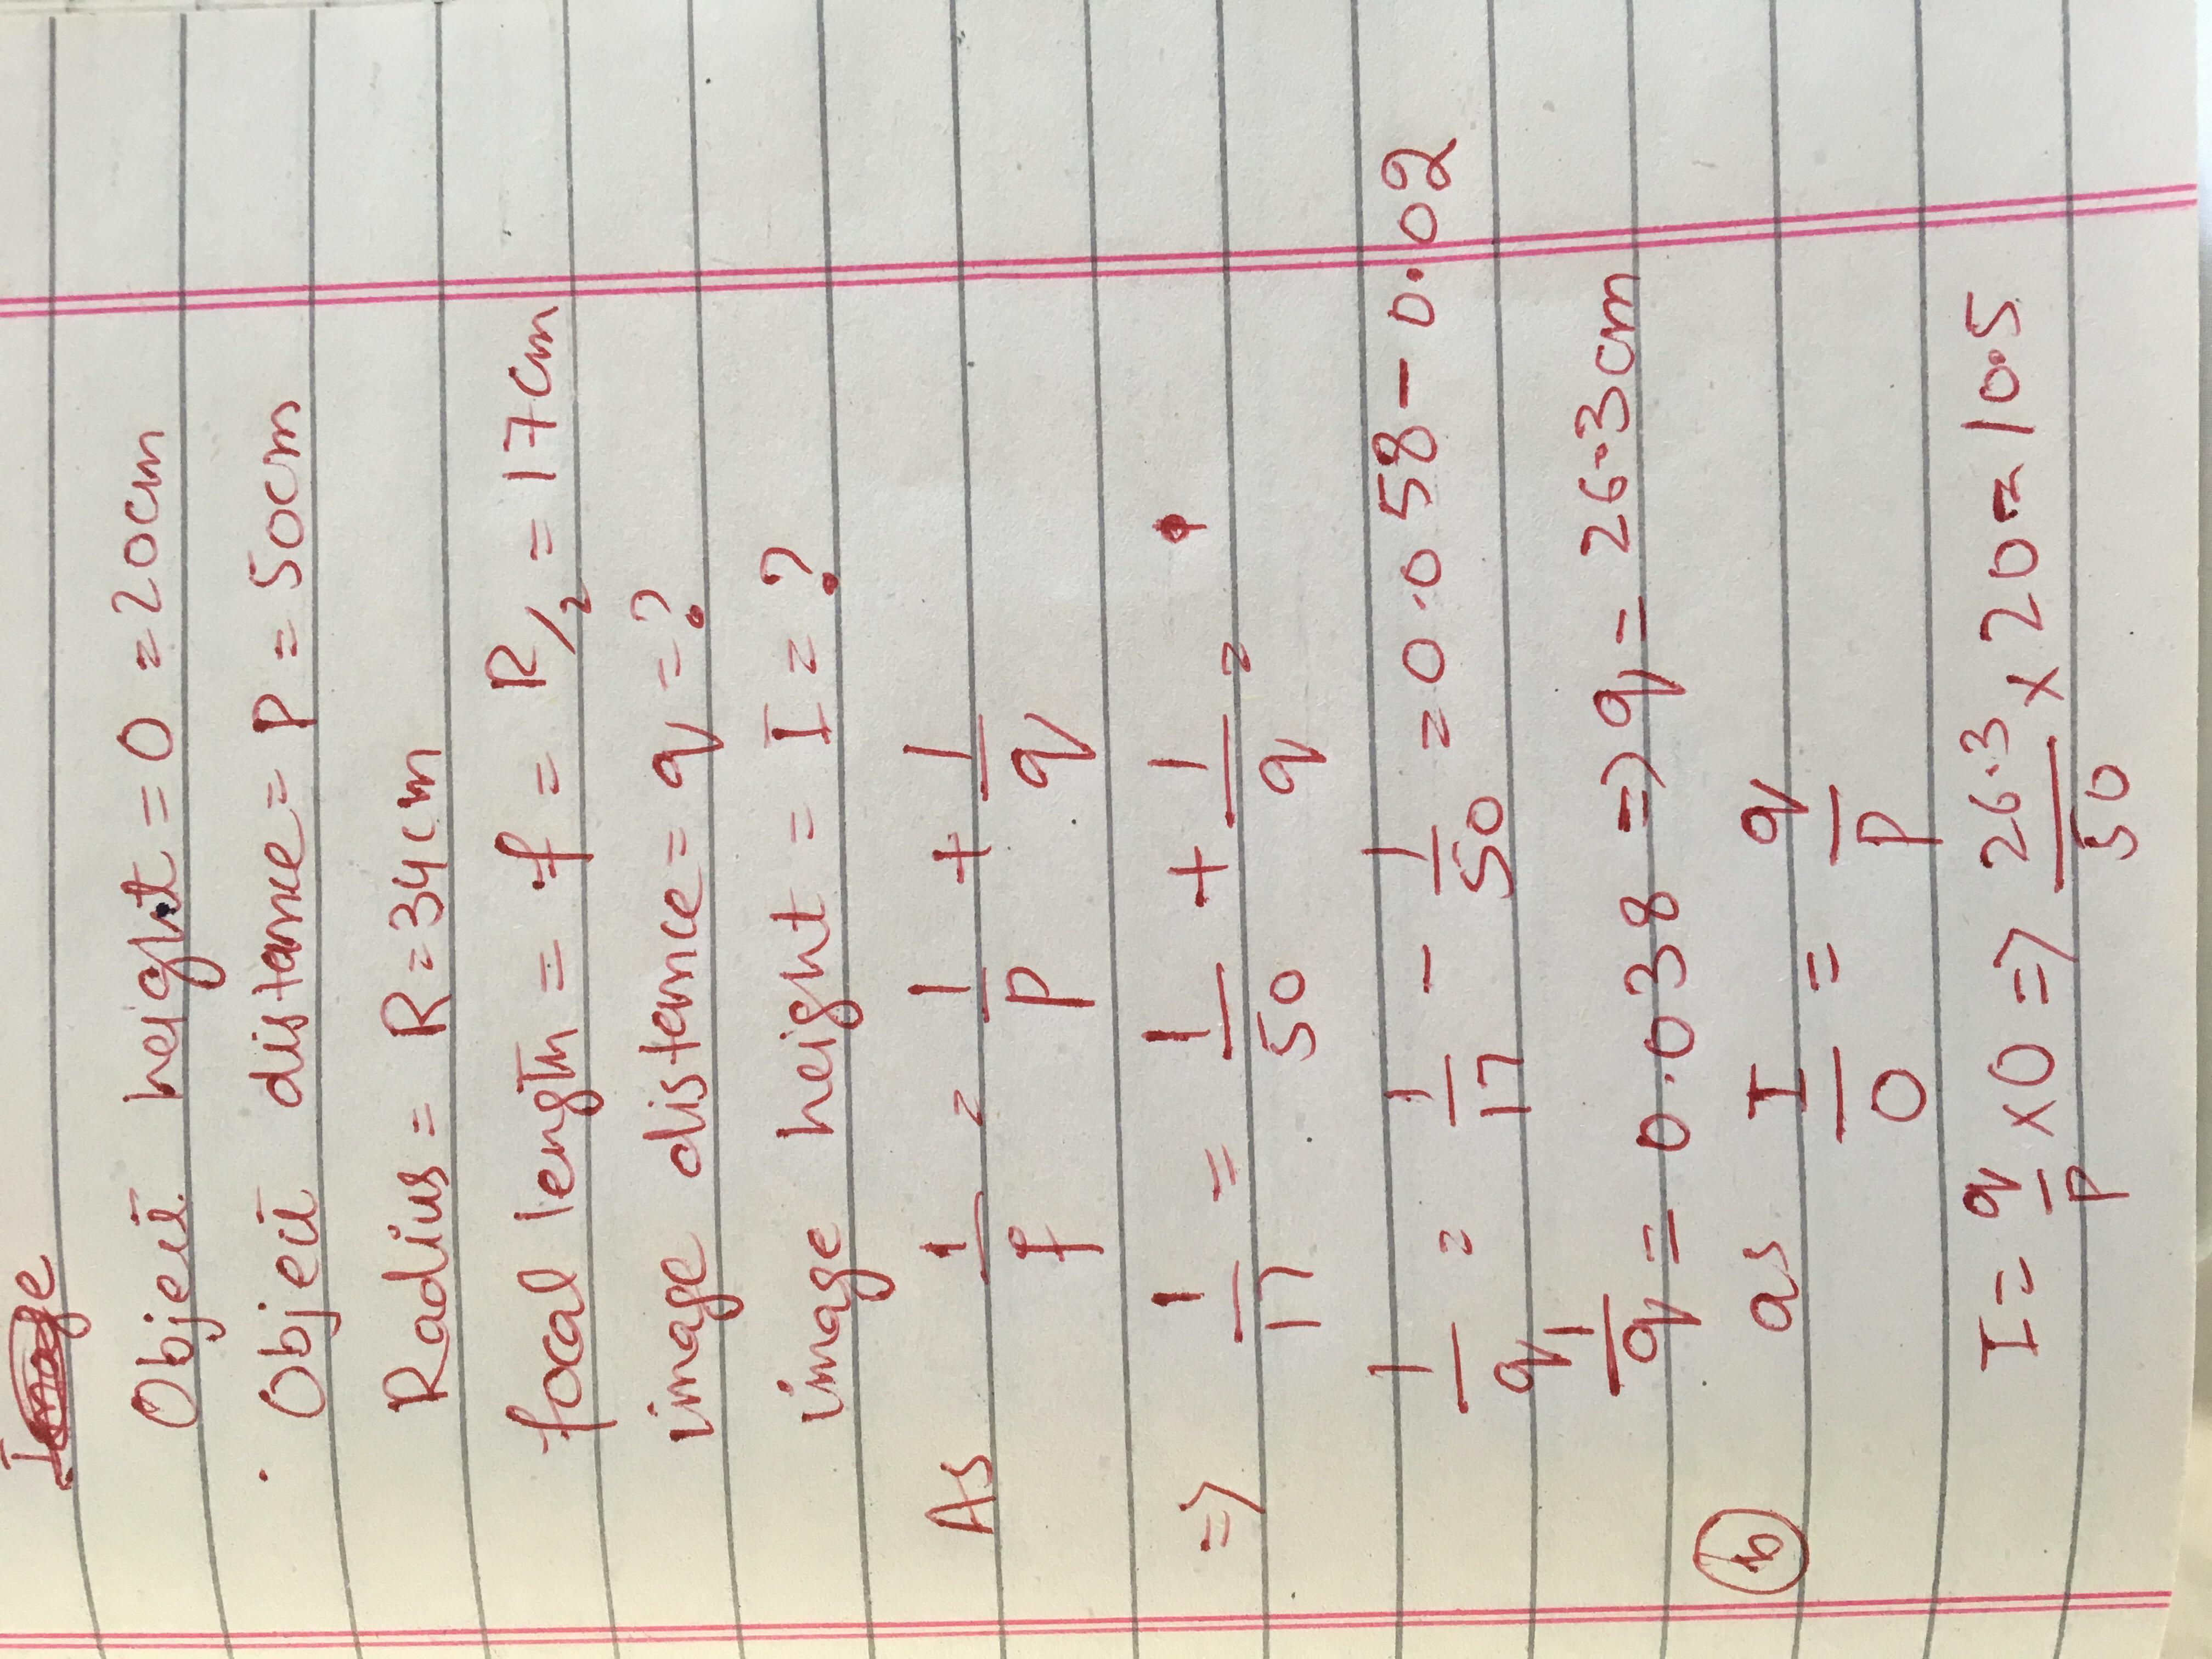 Image
Object height = O = 20cm
Object distance = P = 50cm
Radius = R = 34cm
focal length = f = R/2 = 17cm
image distance = q = ?
image height = I = ?
As 1/f = 1/P + 1/q
=> 1/17 = 1/50 + 1/q =
1/q = 1/17 - 1/50 = 0.058 - 0.02
1/q = 0.038 => q = 26.3cm
(b) as I/O = q/P
I = q/P x O => 26.3/50 x 20 = 10.5